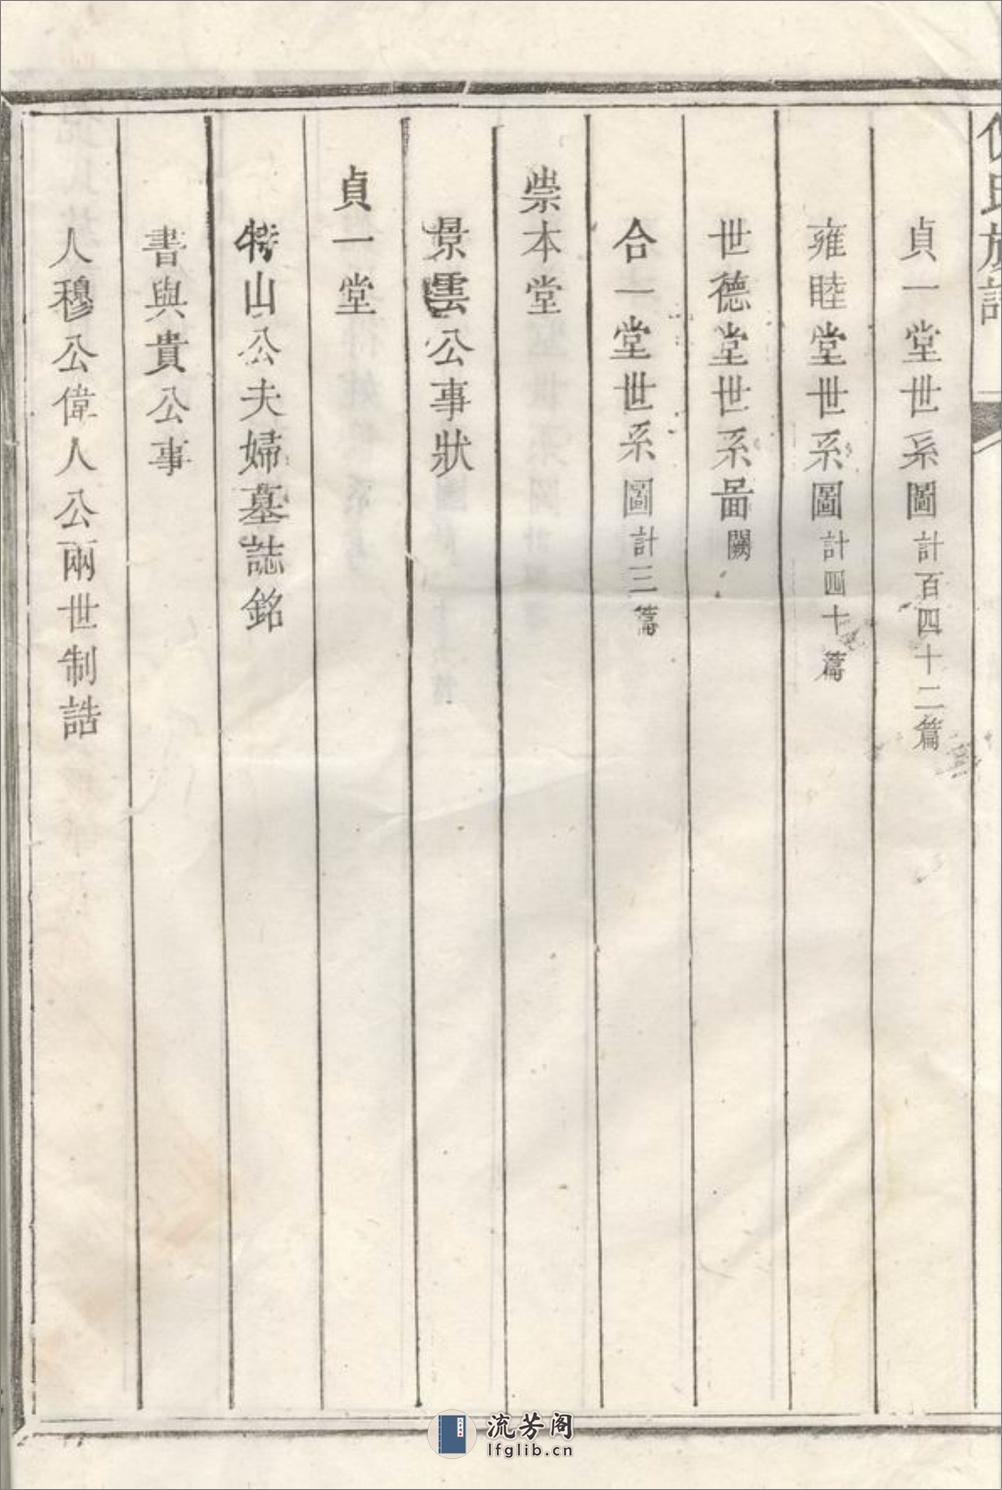 氏族譜
貞一堂世系圖計百四十二篇
雍睦堂世系圖計四十篇
世德堂世系啚闕
合一堂世系圖計三篇
崇本堂
景雲公事狀
貞一堂
山公夫婦墓誌銘
書與貴公事
人穆公偉人公兩世制誥
流芳阁
lfglib.cn